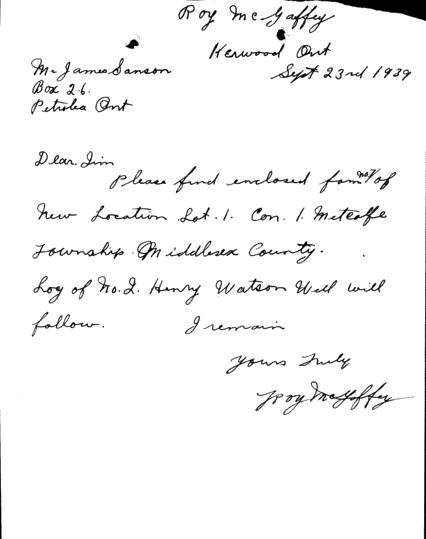 Roy McGaffey
Kerwood Ont
Sept 23rd 1939
Mr James Sanson
Box 26.
Petrolea Ont
Dear Jim
Please find enclosed form no 1 of
New Location Lot. 1. Con. 1. Metcalfe
Township. Middlesex County.
Log of No. 2. Henry Watson Well will
follow. I remain
Yours Truly
Roy McGaffey